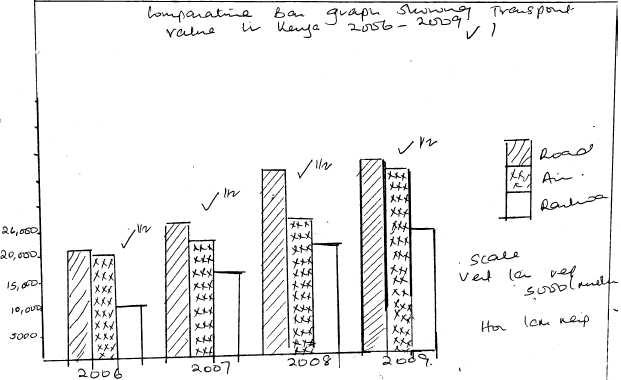 Comparative Bar graph showing Transport
value in Kenya 2006 - 2009 ✓ 1
✓ 1/2
✓ 1/2
✓ 1/2
✓ 1/2
Road
Air
Railway
26,000
20,000
15,000
10,000
5000
Scale
Vert 1cm rep
5000
Hor 1cm rep
2006
2007
2008
2009